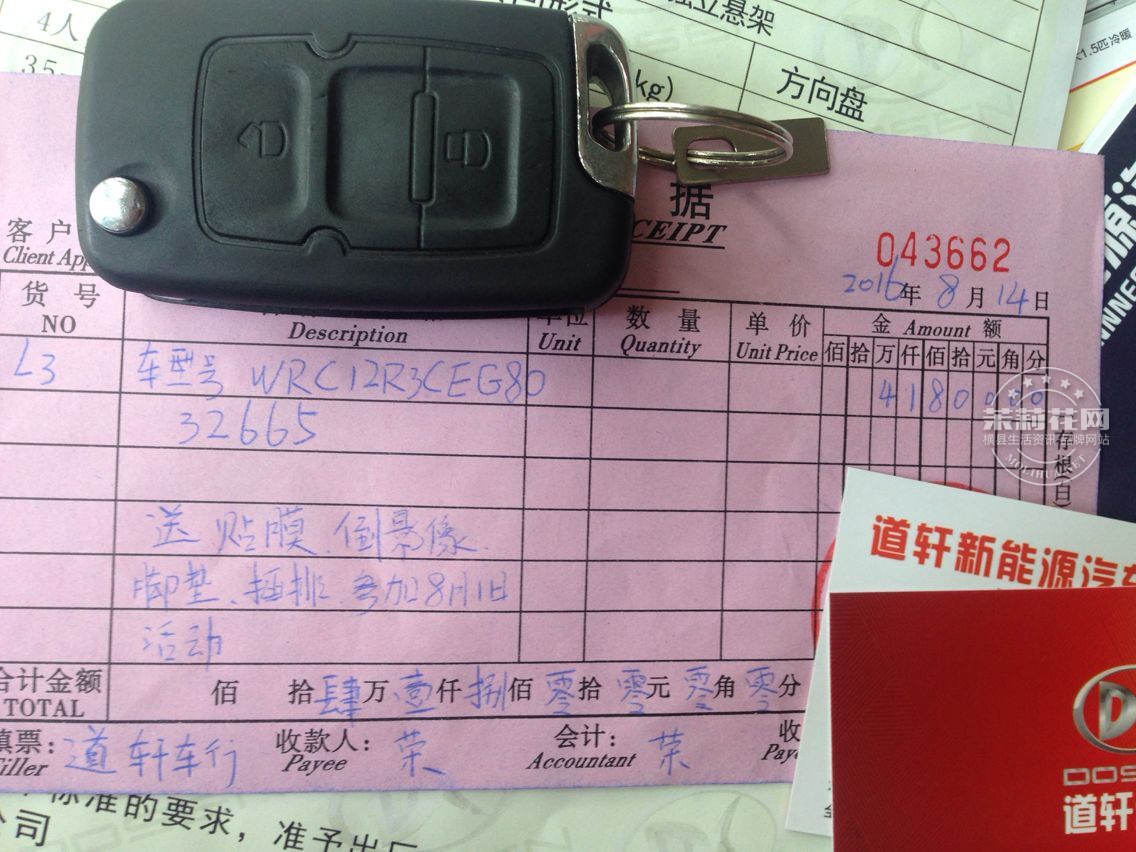 4人
独立悬架
1.5匹冷暖
35
kg)
方向盘
据
CEIPT
043662
客户
Client App
2016年8月14日
货号
NO
Description
单位
Unit
数量
Quantity
单价
Unit Price
金 Amount 额
佰拾万仟佰拾元角分
L3
车型号 WRC12R3CEG80
4180000
32665
存根(白)
茉莉花网
横县生活资讯品牌网站
MOLIHUA.NET
送贴膜、倒影像
脚垫、插排、参加8月1日
活动
合计金额
TOTAL
佰 拾肆万壹仟捌佰零拾零元零角零分
填票:道轩车行
Filler
收款人:荣
Payee
会计:荣
Accountant
收
Pay
道轩新能源汽车
道轩
标准的要求，准予出厂
公司